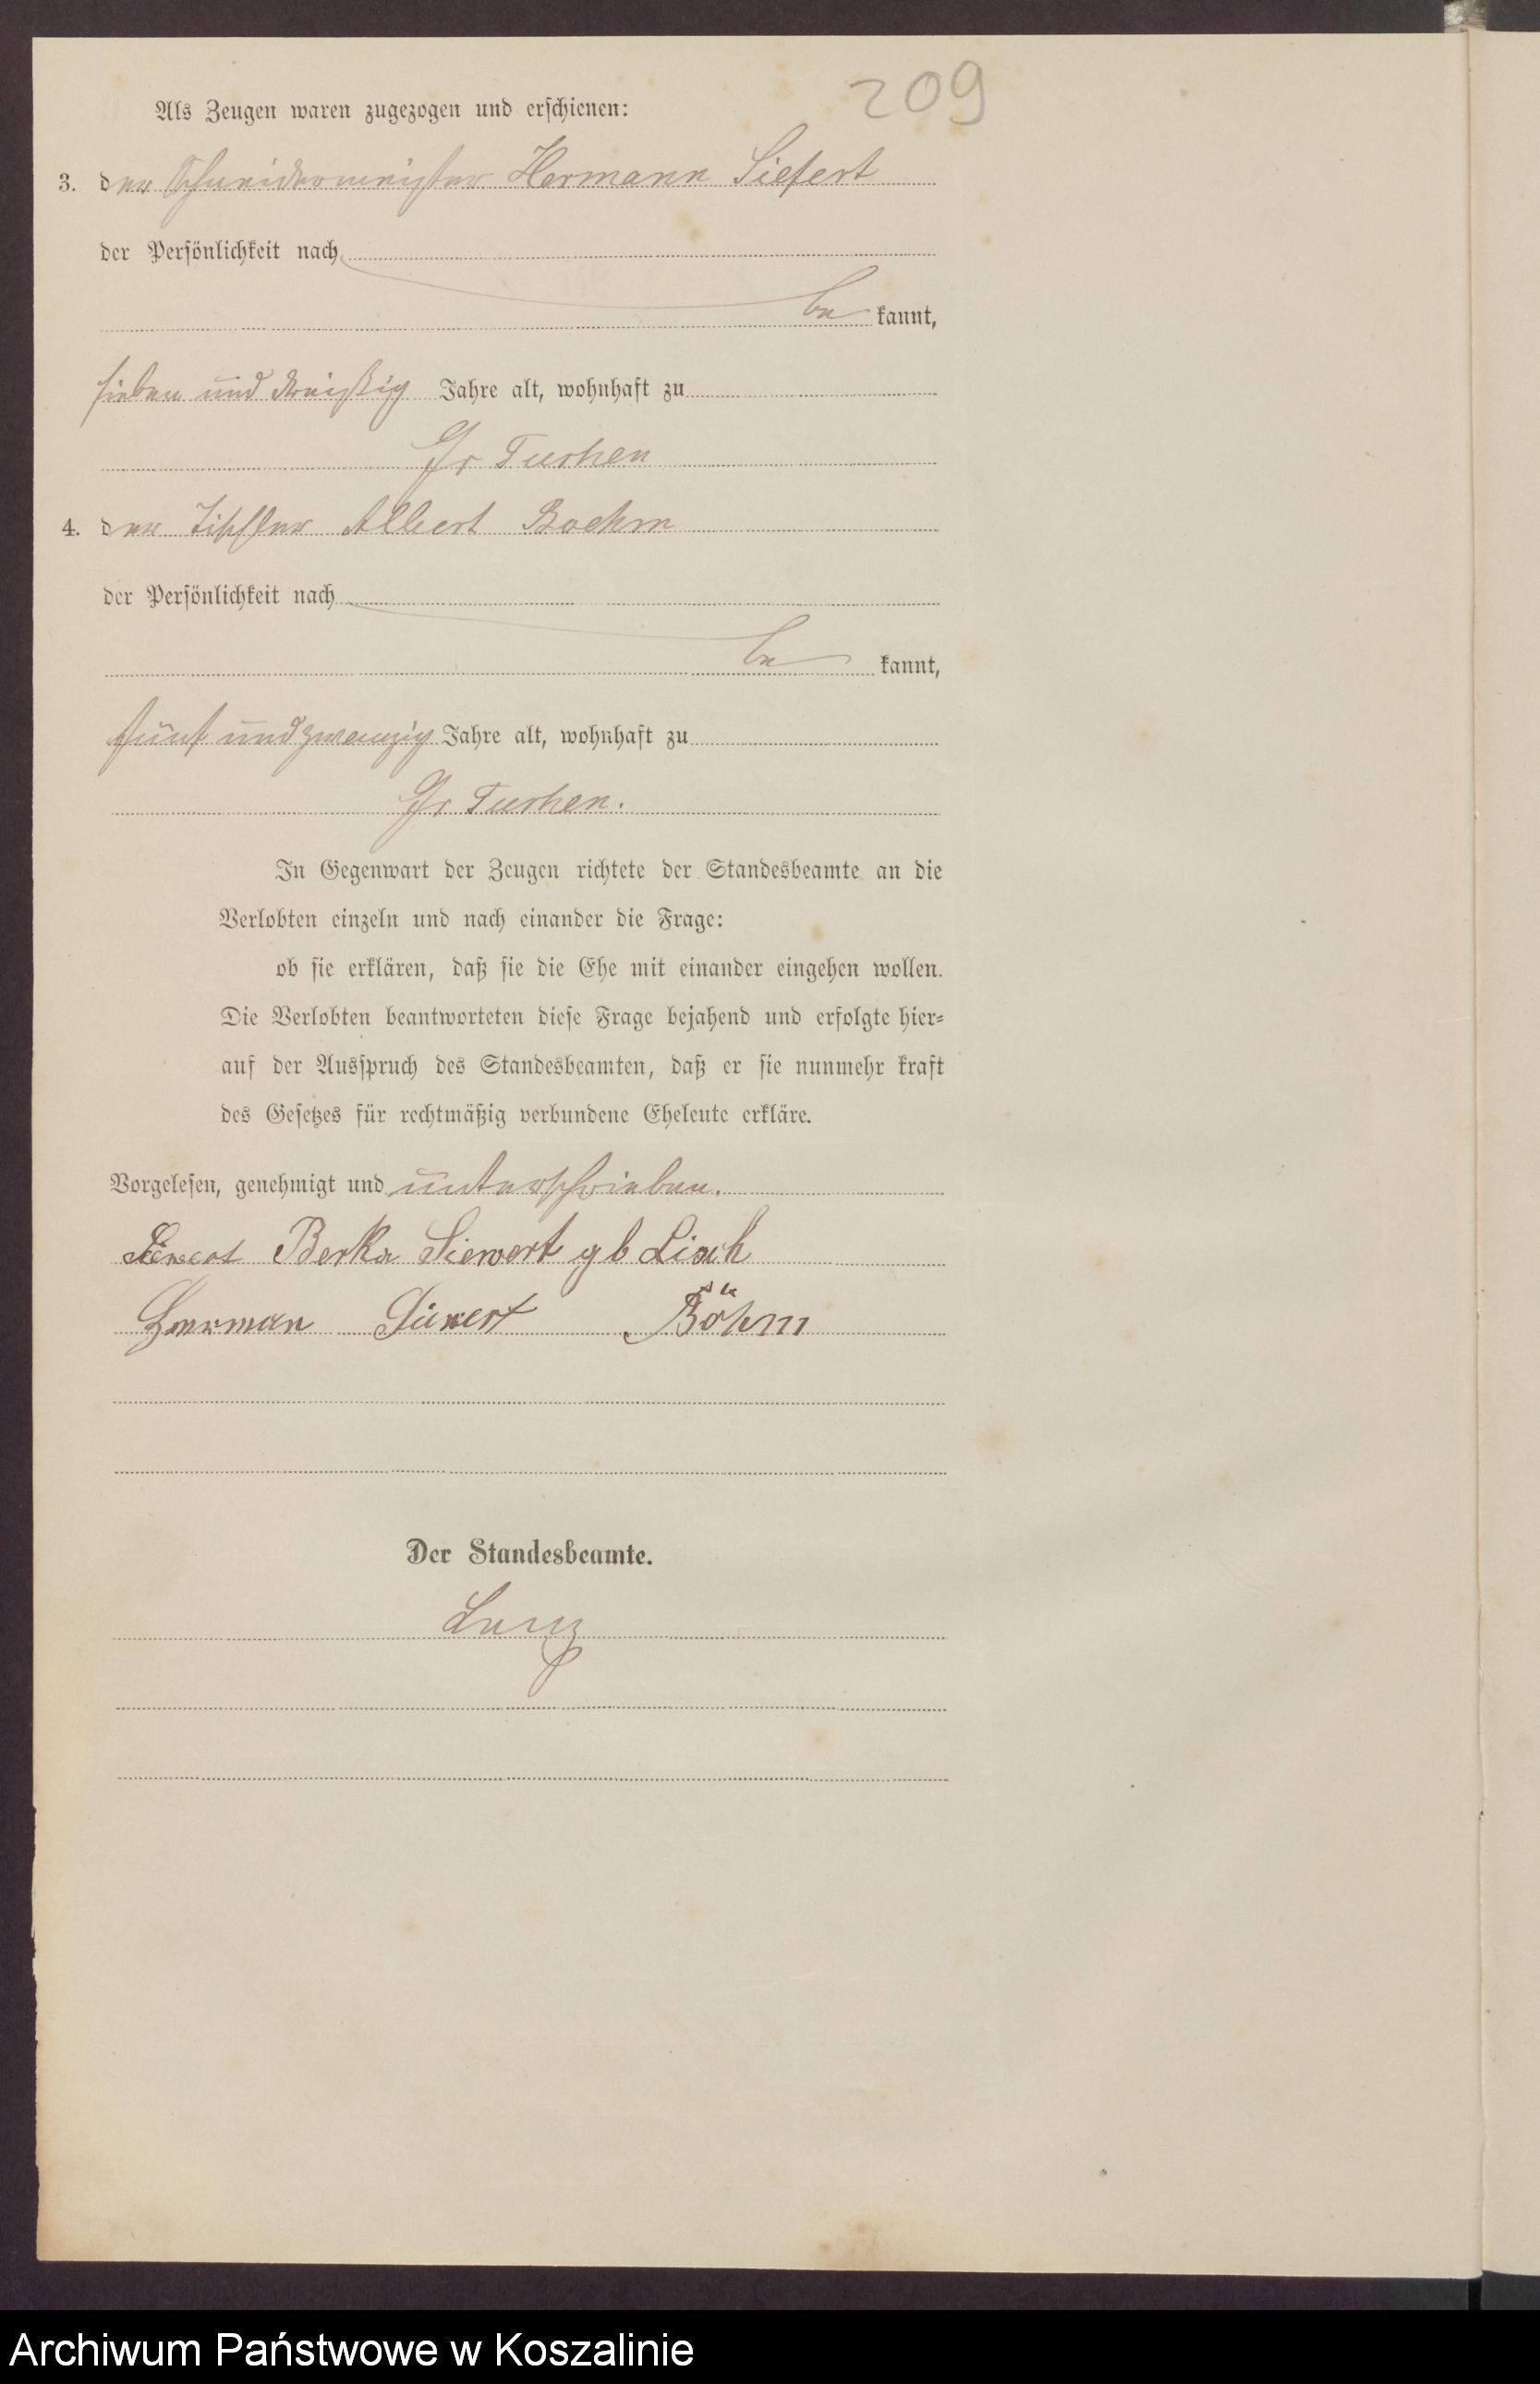 209
Als Zeugen waren zugezogen und erschienen:
3. der Schneidermeister Hermann Siefert
der Persönlichkeit nach
be kannt,
sieben und dreißig Jahre alt, wohnhaft zu
Gr Tuchen
4. der Tischler Albert Boehm
der Persönlichkeit nach
be kannt,
fünf und zwanzig Jahre alt, wohnhaft zu
Gr Tuchen.
In Gegenwart der Zeugen richtete der Standesbeamte an die
Verlobten einzeln und nach einander die Frage:
ob sie erklären, daß sie die Ehe mit einander eingehen wollen.
Die Verlobten beantworteten diese Frage bejahend und erfolgte hier=
auf der Ausspruch des Standesbeamten, daß er sie nunmehr kraft
des Gesetzes für rechtmäßig verbundene Eheleute erkläre.
Vorgelesen, genehmigt und unterschrieben.
Siewert gb
Herman Siewert Böhm
Der Standesbeamte.
Archiwum Państwowe w Koszalinie